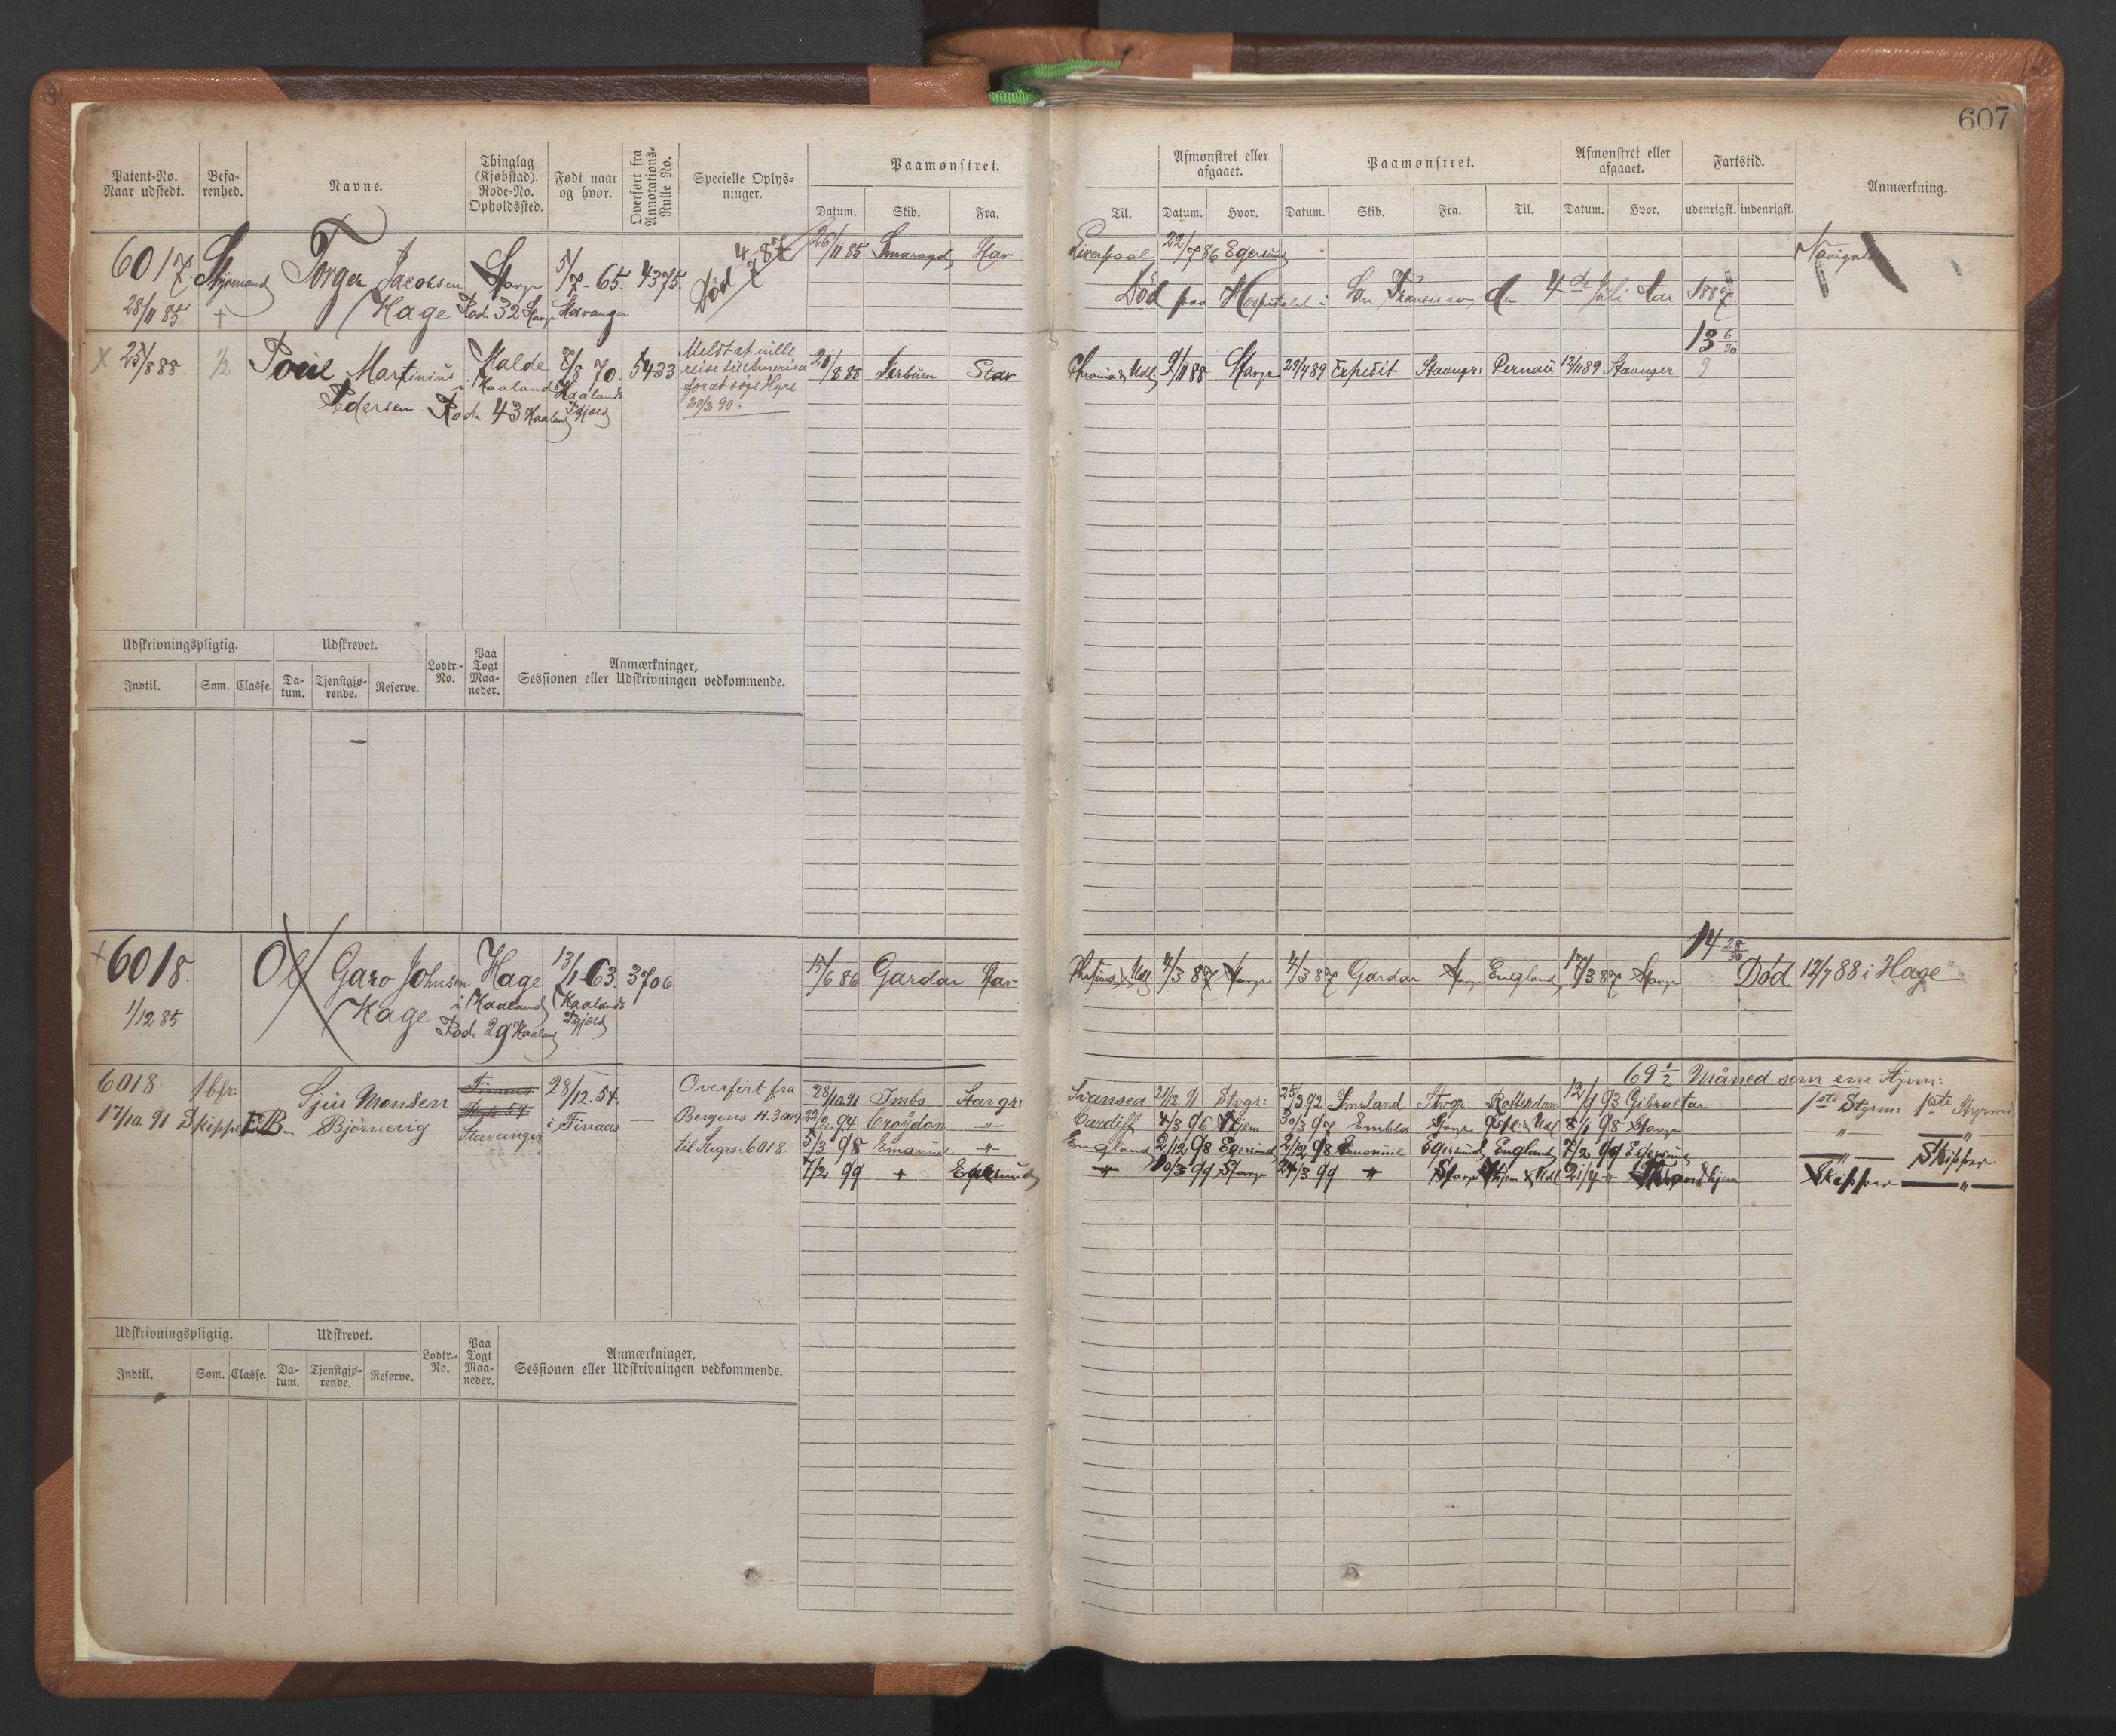 607
Patent-No. Naar udstedt. Befarenhed. Navne. Thinglag (Kjøbstad). Rode-No. Opholdssted. Født naar og hvor. Overført fra Annotations-Rulle No. Specielle Oplysninger. Paamønstret. Datum. Skib. Fra.
Til. Afmønstret eller afgaaet. Datum. Hvor. Paamønstret. Datum. Skib. Fra. Til. Afmønstret eller afgaaet. Datum. Hvor. Fartstid. udenrigsk. indenrigsk. Anmærkning.
6017 Styrmand Torger Jacobsen Stavgr 5/7-65. 4375. Død 4/7 87 26/11 85 Smaragd Stav Liverpool 22/7 86 Egersund
28/11 85 † Hage Rode 32 Stavgr Stavanger Død paa Hospitalet i San Fransisco den 4de Juli 1887
13 6/30
X 25/8 88. 1/2 Poul Martinius Malde 7/8 70. 5433 Meldt at ville 21/8 88 Stav 9/11 88 Stavgr 29/4 89 Expedit Stavngr: Pernau 12/11 89 Stavanger
i Haaland Haalands reise til Amerika
Pedersen. Rode 43 Haaland Pgjæld for at søge Hyre
20/3 90.
Udskrivningspligtig. Udskrevet. Lodtr.-No. Paa Togt Maaneder. Anmærkninger, Sessionen eller Udskrivningen vedkommende.
Indtil. Som. Classe. Datum. Tjenstgjørende. Reserve.
14 28/30
+ 6018. Ole Garo Johnsen Hage 13/1-63. 3706 15/6 86 Gardar Stav 4/3 87 Stavgr 4/3 87 Gardar Stavgr England 17/3 87 Stavgr Død 12/7 88 i Hage
1/12 85 Hage i Haaland Haalands
Rode 29 Haaland Pgjæld
69 1/2 Måned som ene Styrm:
6018. 1 bfr. Sjur Monsen Finnaas 28/12. 54. Overført fra 28/10 91 Imbs Stavgr: Swansea 21/12 91 Stvgr: 25/3 92 Imsland Stvgr. Rotterdam 12/1 93 Gibraltar 1ste Styrm: 1ste Styrmd
17/10 91 Skipper F.B. Bjørnevig Stavanger i Finaas — Bergens H. 3009 22/2 94 Croydon —"— Cardiff 4/3 96 Hjem 30/3 97 Embla Stavgr 8/1 98 Stavgr " —"—
til Stvgrs. 6018. 5/3 98 Emanuel —"— England 2/12 98 Egersund 2/12 98 Emanuel Egersund England 7/2 99 Egersund —"— Skipper
7/2 99 " Egersund —"— 10/3 99 Stavgr 24/3 99 " Stavgr Thjem & Udl 21/4 " Trondhjem Skipper —"—
Udskrivningspligtig. Udskrevet. Lodtr.-No. Paa Togt Maaneder. Anmærkninger, Sessionen eller Udskrivningen vedkommende.
Indtil. Som. Classe. Datum. Tjenstgjørende. Reserve.